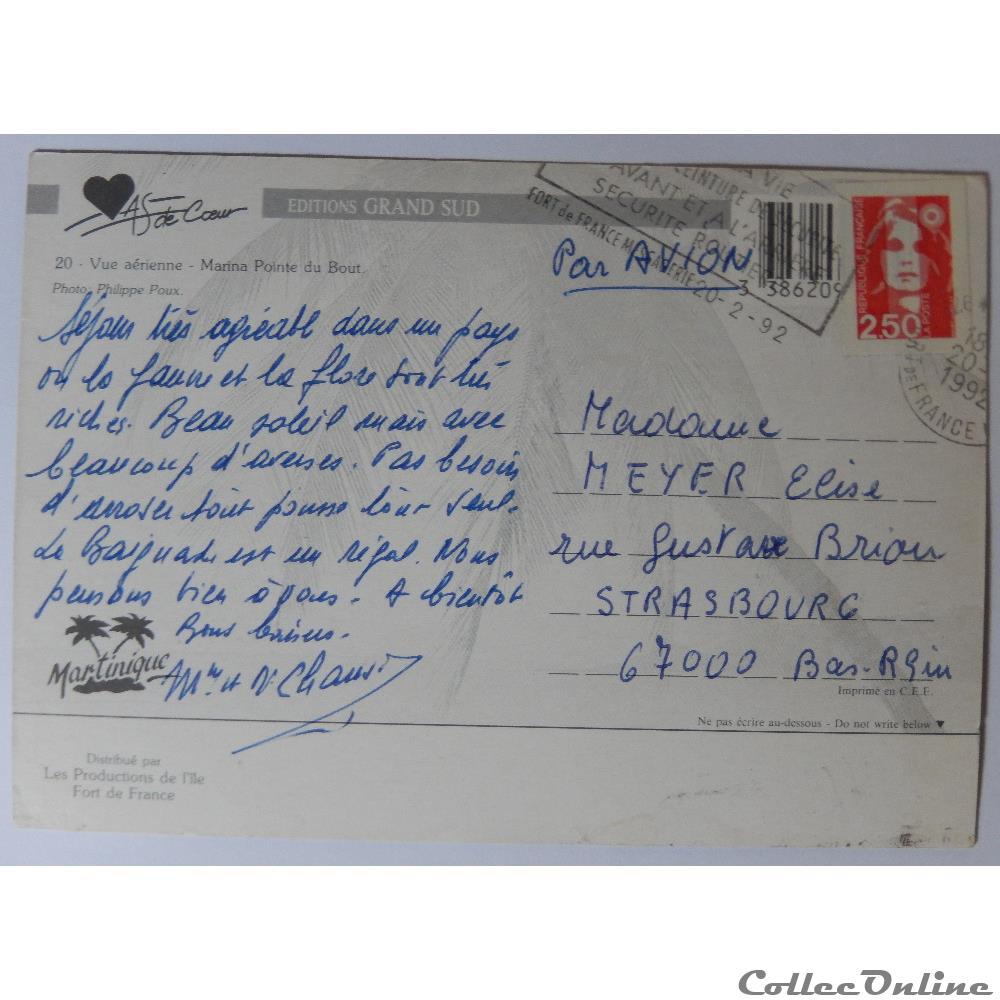 AS de Cœur
EDITIONS GRAND SUD
20 - Vue aérienne - Marina Pointe du Bout.
Photo: Philippe Poux.
Séjour très agréable dans un pays
ou la faune et la flore sont très
riches. Beau soleil mais avec
beaucoup d'averses. Pas besoin
d'arroser tout pousse tout seul.
La Baignade est un régal. Nous
pensons bien à vous. A bientôt
Bons baisers.
Mme et Mr
Martinique
Distribué par
Les Productions de l'Ile
Fort de France
VIE
CEINTURE DE SECURITE
AVANT ET A L'ARRIERE
SECURITE ROUTIERE
FORT de FRANCE MESSAGERIE 20-2-92
Par AVION
3 386209
REPUBLIQUE FRANÇAISE
LA POSTE
2,50
18
20-
1992
FORT DE FRANCE
Madame
MEYER Elise
rue Gustave Brion
STRASBOURG
67000 Bas-Rhin
Imprimé en C.E.E.
Ne pas écrire au-dessous - Do not write below ▼
CollecOnline